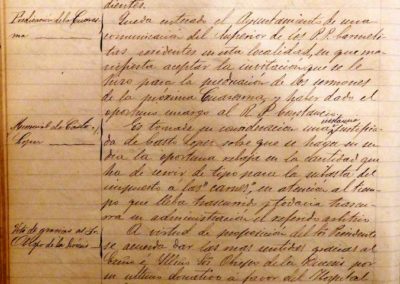 dientes.
Predicacion de la Cuares-
ma
Queda enterado el Ayuntamiento de una
comunicacion del Superior de los R.P. Carmeli-
tas residentes en esta localidad, en que ma-
nifiesta aceptar la invitacion que se le
hizo para la predicacion de los sermones
de la próxima Cuaresma, y haber dado el
oportuno encargo al R. P. Constancio.
Memorial de Casto
Lopez
Es tomada en consideracion una instancia justifica-
da de Casto Lopez sobre que se haga en su
dia la oportuna rebaja en la cantidad que
ha de servir de tipo para la subasta del
impuesto a las carnes, en atencion al tiem-
po que lleva trascurrido y todavia trascur-
rirá en administracion el referido arbitrio
Voto de gracias al Sr.
Obispo de la Diócesis
A virtud de proposicion del Sr. Presidente
se acuerda dar las mas sentidas gracias al
Excmo é Illmo Sr. Obispo de la Diócesis por
su ultimo donativo a favor del Hospital